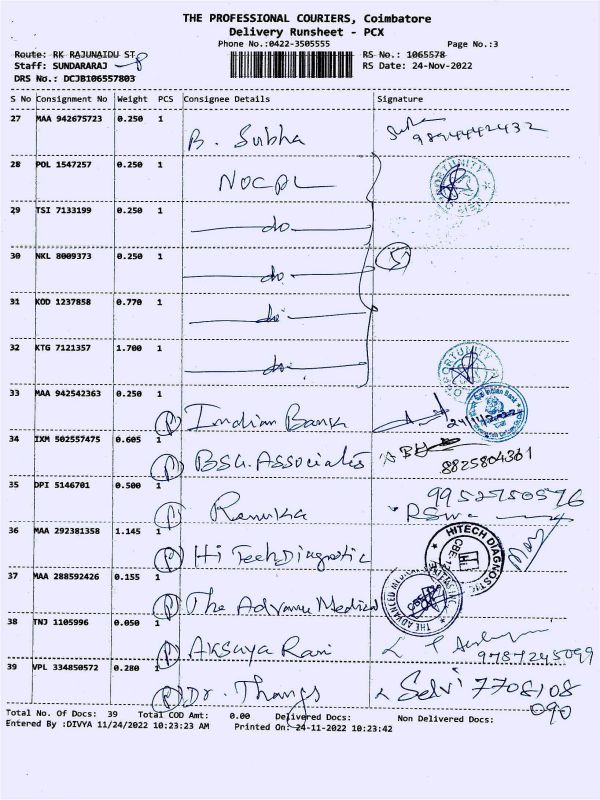 THE PROFESSIONAL COURIERS, Coimbatore
Delivery Runsheet - PCX
Phone No.:0422-3505555 Page No.:3
Route: RK RAJUNAIDU ST RS No.: 1065578
Staff: SUNDARARAJ RS Date: 24-Nov-2022
DRS No.: DCJB106557803
S No Consignment No Weight PCS Consignee Details Signature
27 MAA 942675723 0.250 1
B. Subha 9894442432
28 POL 1547257 0.250 1
NOCPL
29 TSI 7133199 0.250 1
do
30 NKL 8009373 0.250 1
do 5
31 KOD 1237858 0.770 1
do
32 KTG 7121357 1.700 1
do
33 MAA 942542363 0.250 1
P Indian Bank
34 IXM 502557475 0.605 1
P BSG. Associates 8825804361
35 DPI 5146701 0.500 1
P Renuka 9952750576
36 MAA 292381358 1.145 1
P Hi Tech Diagnostic HITECH DIAGNOSTIC
37 MAA 288592426 0.155 1
P The Advance Medical THE ADVANCED
38 TNJ 1105996 0.050 1
P Aksaya Rani 9787245099
39 VPL 334850572 0.280 1
P Dr. Thangs Selvi 7708108
090
Total No. Of Docs: 39 Total COD Amt: 0.00 Delivered Docs: Non Delivered Docs:
Entered By :DIVYA 11/24/2022 10:23:23 AM Printed On: 24-11-2022 10:23:42